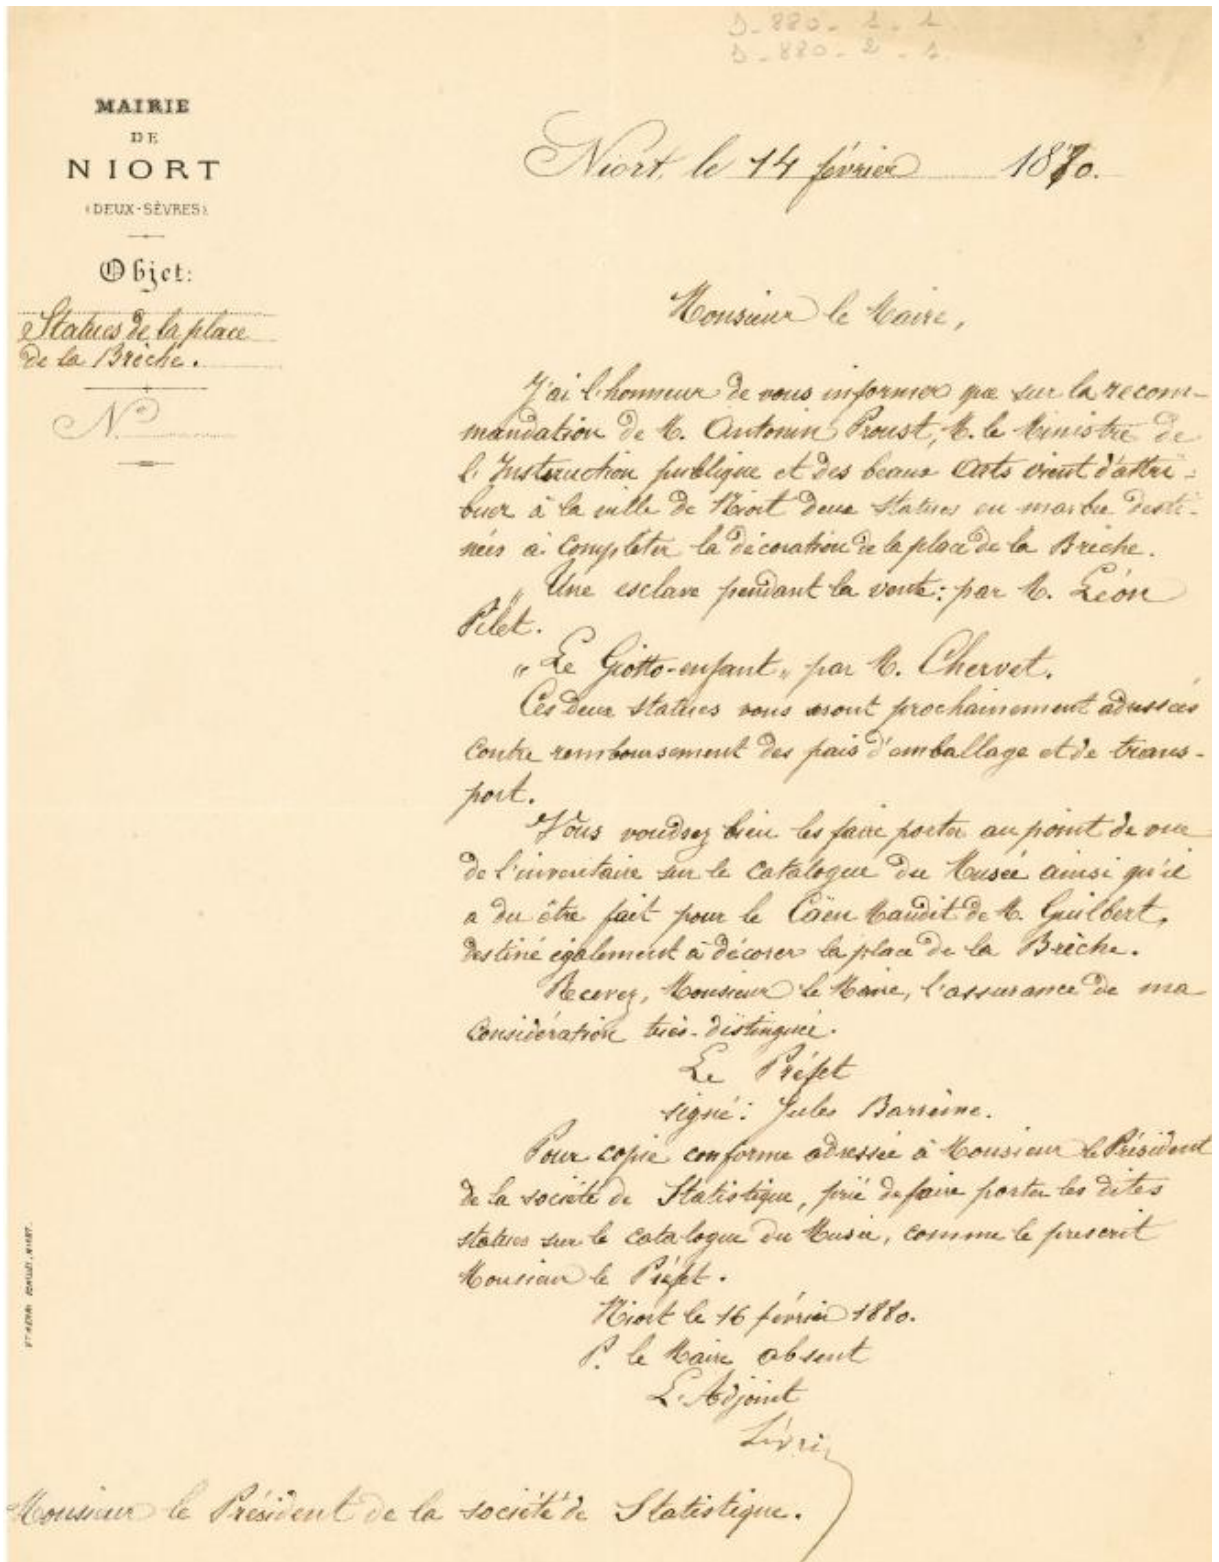 D-880-1-1
D-880-2-1
MAIRIE
DE
NIORT
(DEUX-SÈVRES)
Objet:
Statues de la place
de la Brèche.
N°
Niort, le 14 février 1880.
Monsieur le Maire,
J'ai l'honneur de vous informer que sur la recom-
mandation de M. Antonin Proust, M. le Ministre de
l'Instruction publique et des beaux Arts vient d'attri-
buer à la ville de Niort deux statues en marbre desti-
nées à compléter la décoration de la place de la Brèche.
" Une esclave pendant la vente: par M. Léon
Pilet.
" Le Giotto-enfant " par M. Chervet.
Ces deux statues vous seront prochainement adressées
contre remboursement des frais d'emballage et de trans-
port.
Vous voudrez bien les faire porter au point de vue
de l'inventaire sur le catalogue du Musée ainsi qu'il
a du être fait pour le Caën Maudit de M. Guilbert,
destiné également à décorer la place de la Brèche.
Recevez, Monsieur le Maire, l'assurance de ma
considération très-distinguée.
Le Préfet
signé: Jules Barrème.
Pour copie conforme adressée à Monsieur le Président
de la société de Statistique, prié de faire porter les dites
statues sur le catalogue du Musée, comme le prescrit
Monsieur le Préfet.
Niort le 16 février 1880.
P. le Maire absent
L'Adjoint
Monsieur le Président de la société de Statistique.